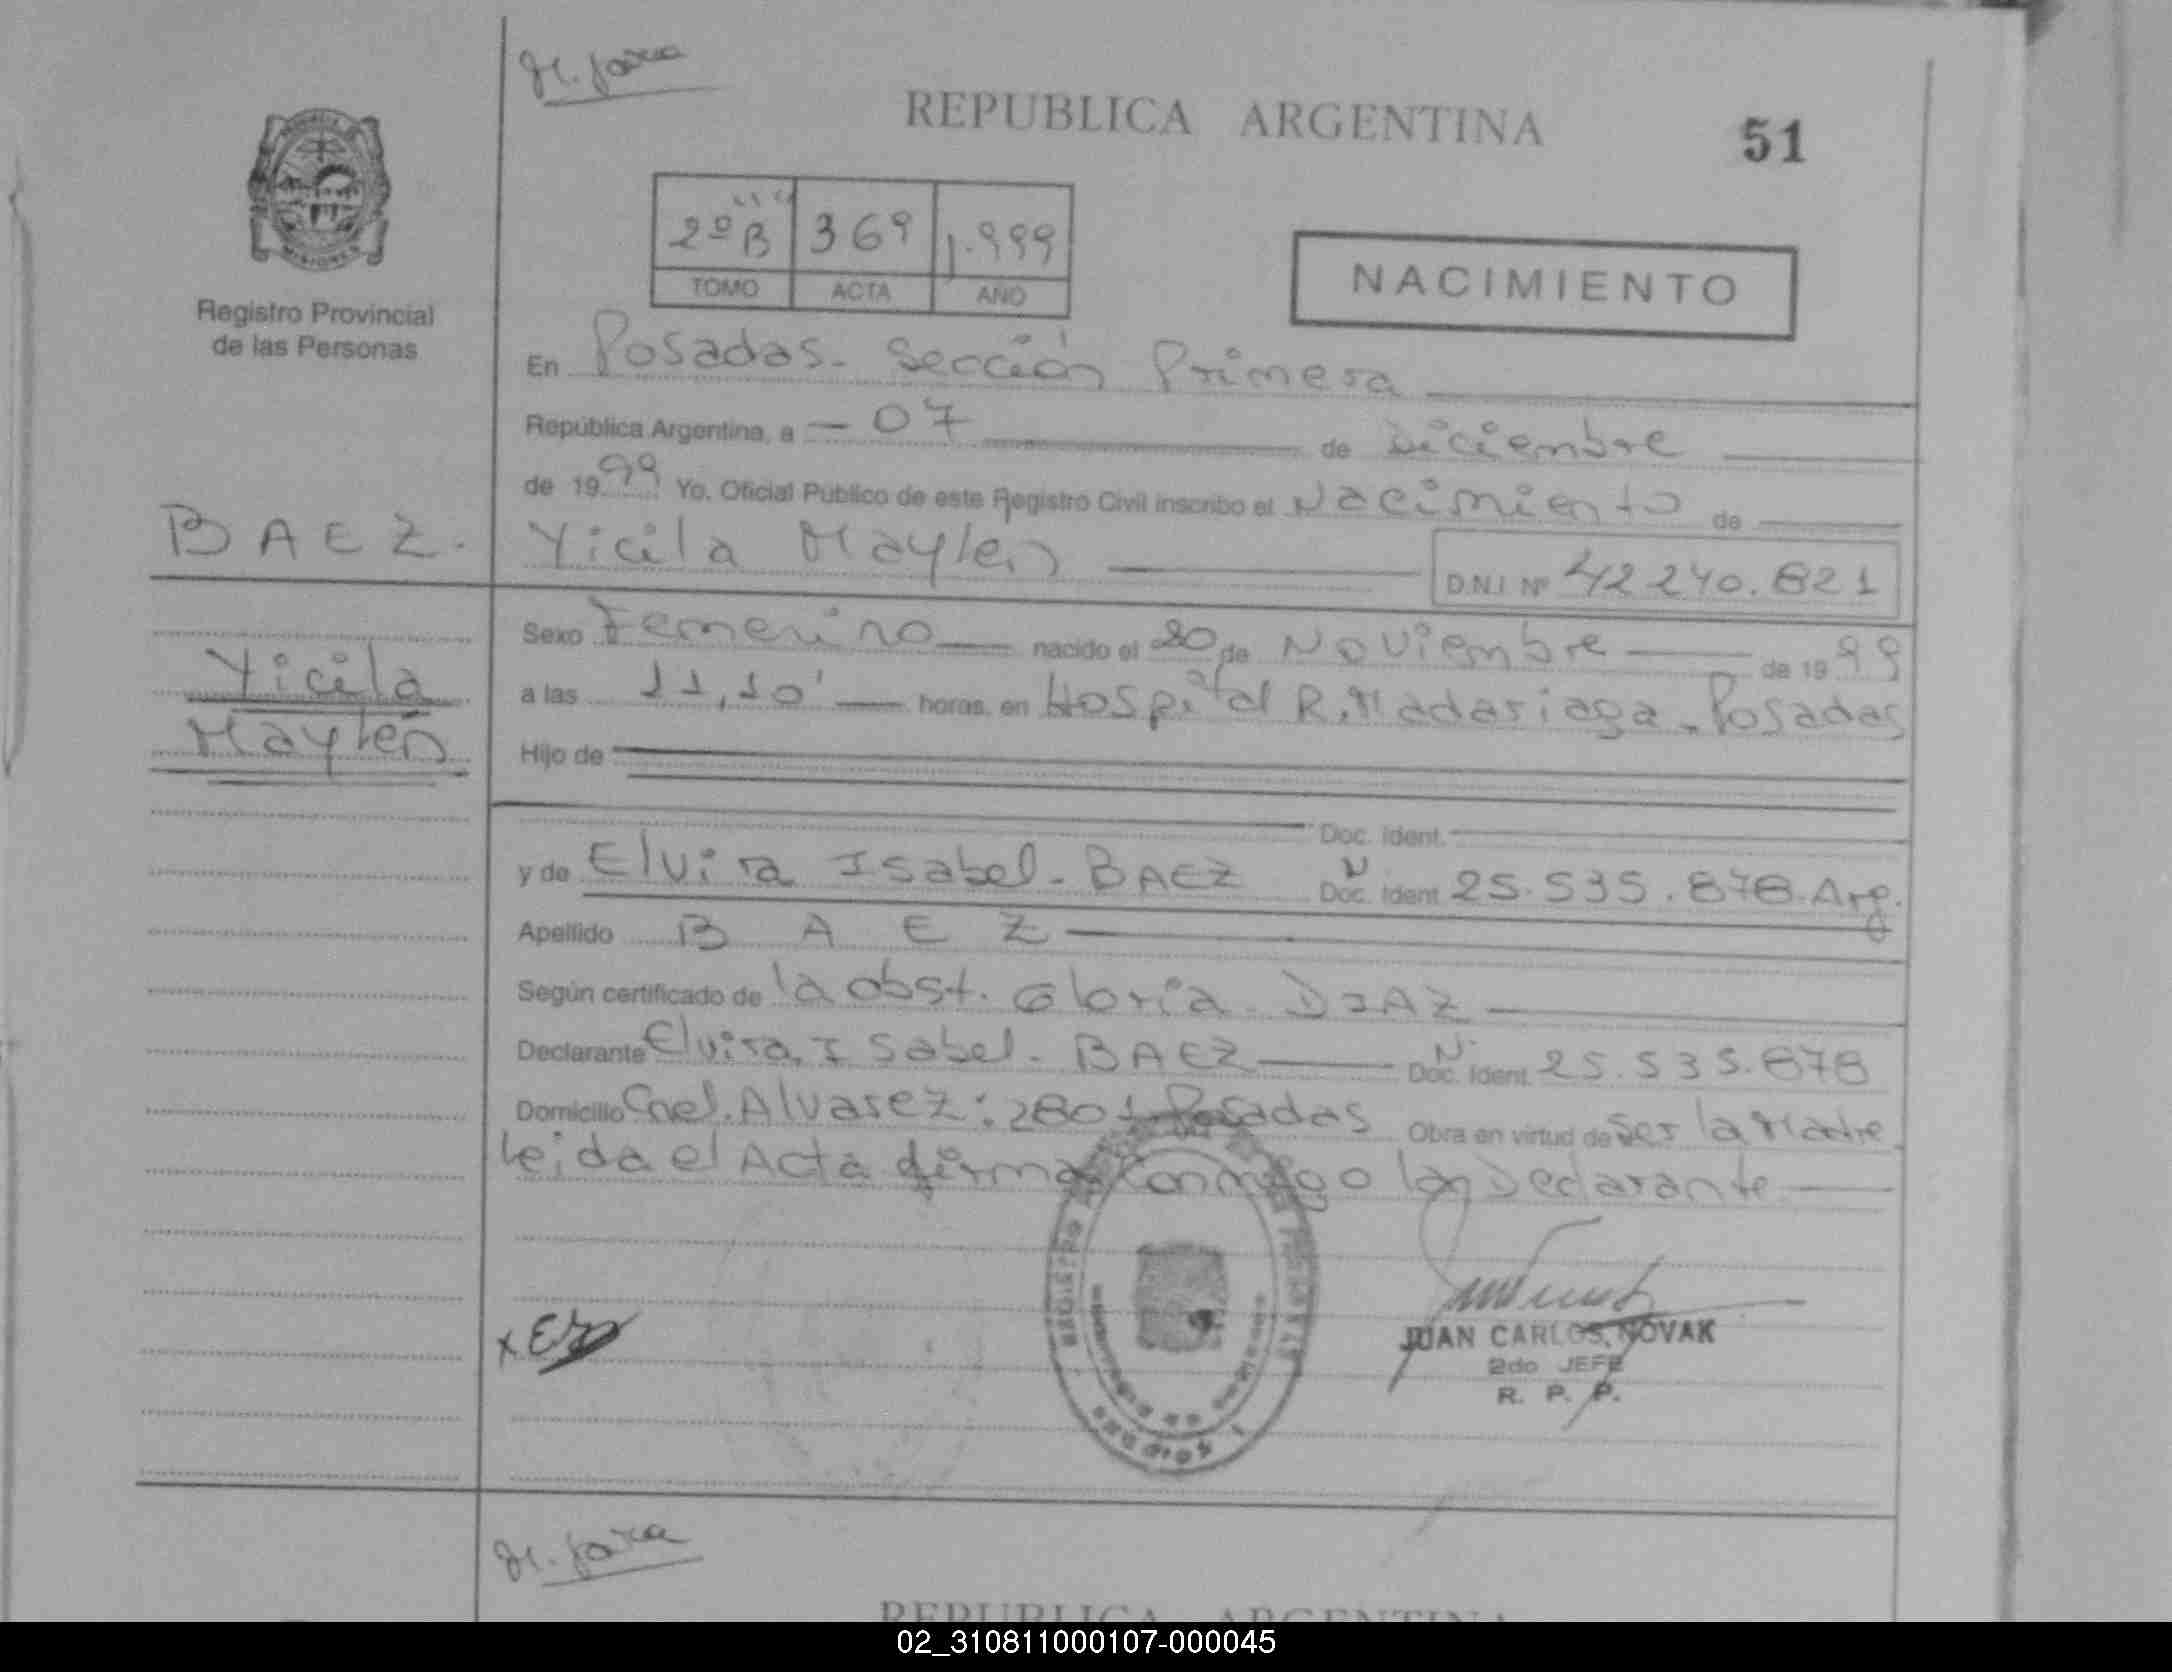 H. Jara
REPUBLICA ARGENTINA
51
2º B 369 1.999
TOMO ACTA AÑO
NACIMIENTO
MISIONES
Registro Provincial
de las Personas
En Posadas - Sección Primera
República Argentina, a - 07 de Diciembre
de 1999 Yo, Oficial Público de este Registro Civil inscribo el Nacimiento de
BAEZ. Yicila Maylen
D.N.I. Nº 42240.821
Sexo Femenino nacido el 20 de Noviembre de 1999
Yicila
a las 11,10' horas, en Hospital R. Madariaga - Posadas
Maylen
Hijo de
Doc. Ident.
y de Elvira Isabel - BAEZ Doc. Ident. N 25.535.878 Arg.
Apellido BAEZ
Según certificado de la obst. Gloria DIAZ
Declarante Elvira Isabel - BAEZ Doc. Ident. N. 25.535.878
Domicilio Cnel. Alvarez: 2801 Posadas Obra en virtud de Ser la Madre
leida el Acta firma Conmigo la Declarante
JUAN CARLOS NOVAK
2do JEFE
R. P. P.
H. Jara
REPUBLICA ARGENTINA
02_310811000107-000045